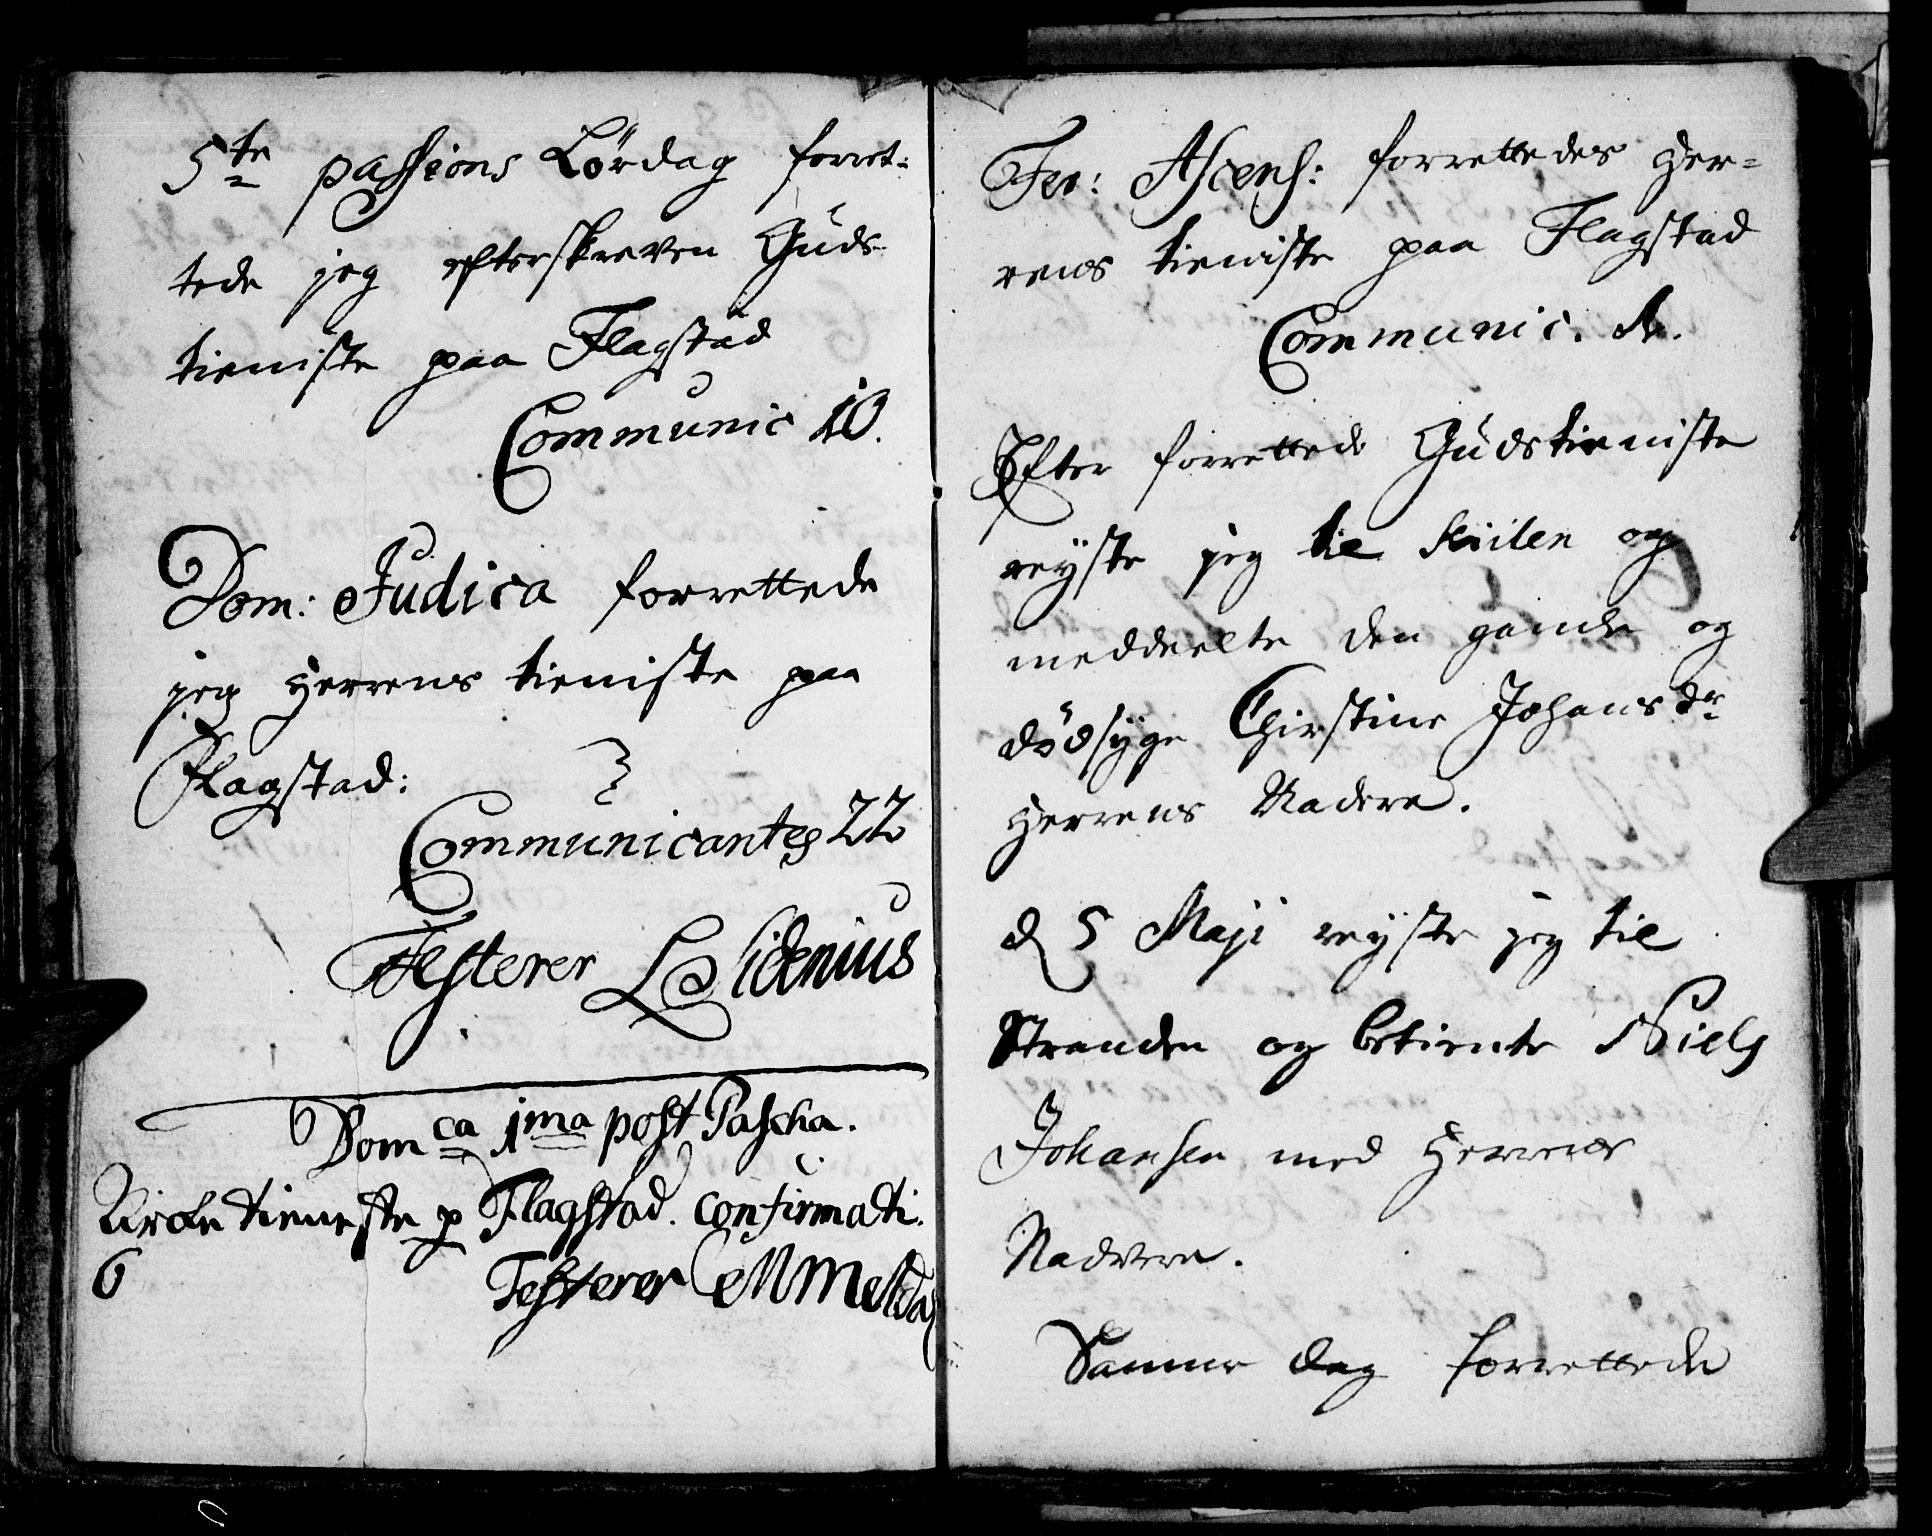 5te passions Lördag forret-
tede jeg efterskreven Guds
tieniste paa Flagstad
Communic 10.
Dom: Judica forrettede
jeg Herrens tieniste paa
Flagstad:
Communicantes 22
Testerer L Sidenius
Domca 1ma post Pascha.
Kircketieneste p Flagstad. confirmati.
6
Testerer
Fer: Ascens: forrettedes Her-
rens tieniste paa Flagstad
Communic.
Efter forrettede Gudstieniste
reyste jeg til og
meddeelte den gamle og
dödsyge Chirstine Johansdr
Herrens Nadere.
d 5 Maji reyste jeg til
Stranden og betiente Niels
Johansen med Herrens
Nadvere.
Samme dag forrettede